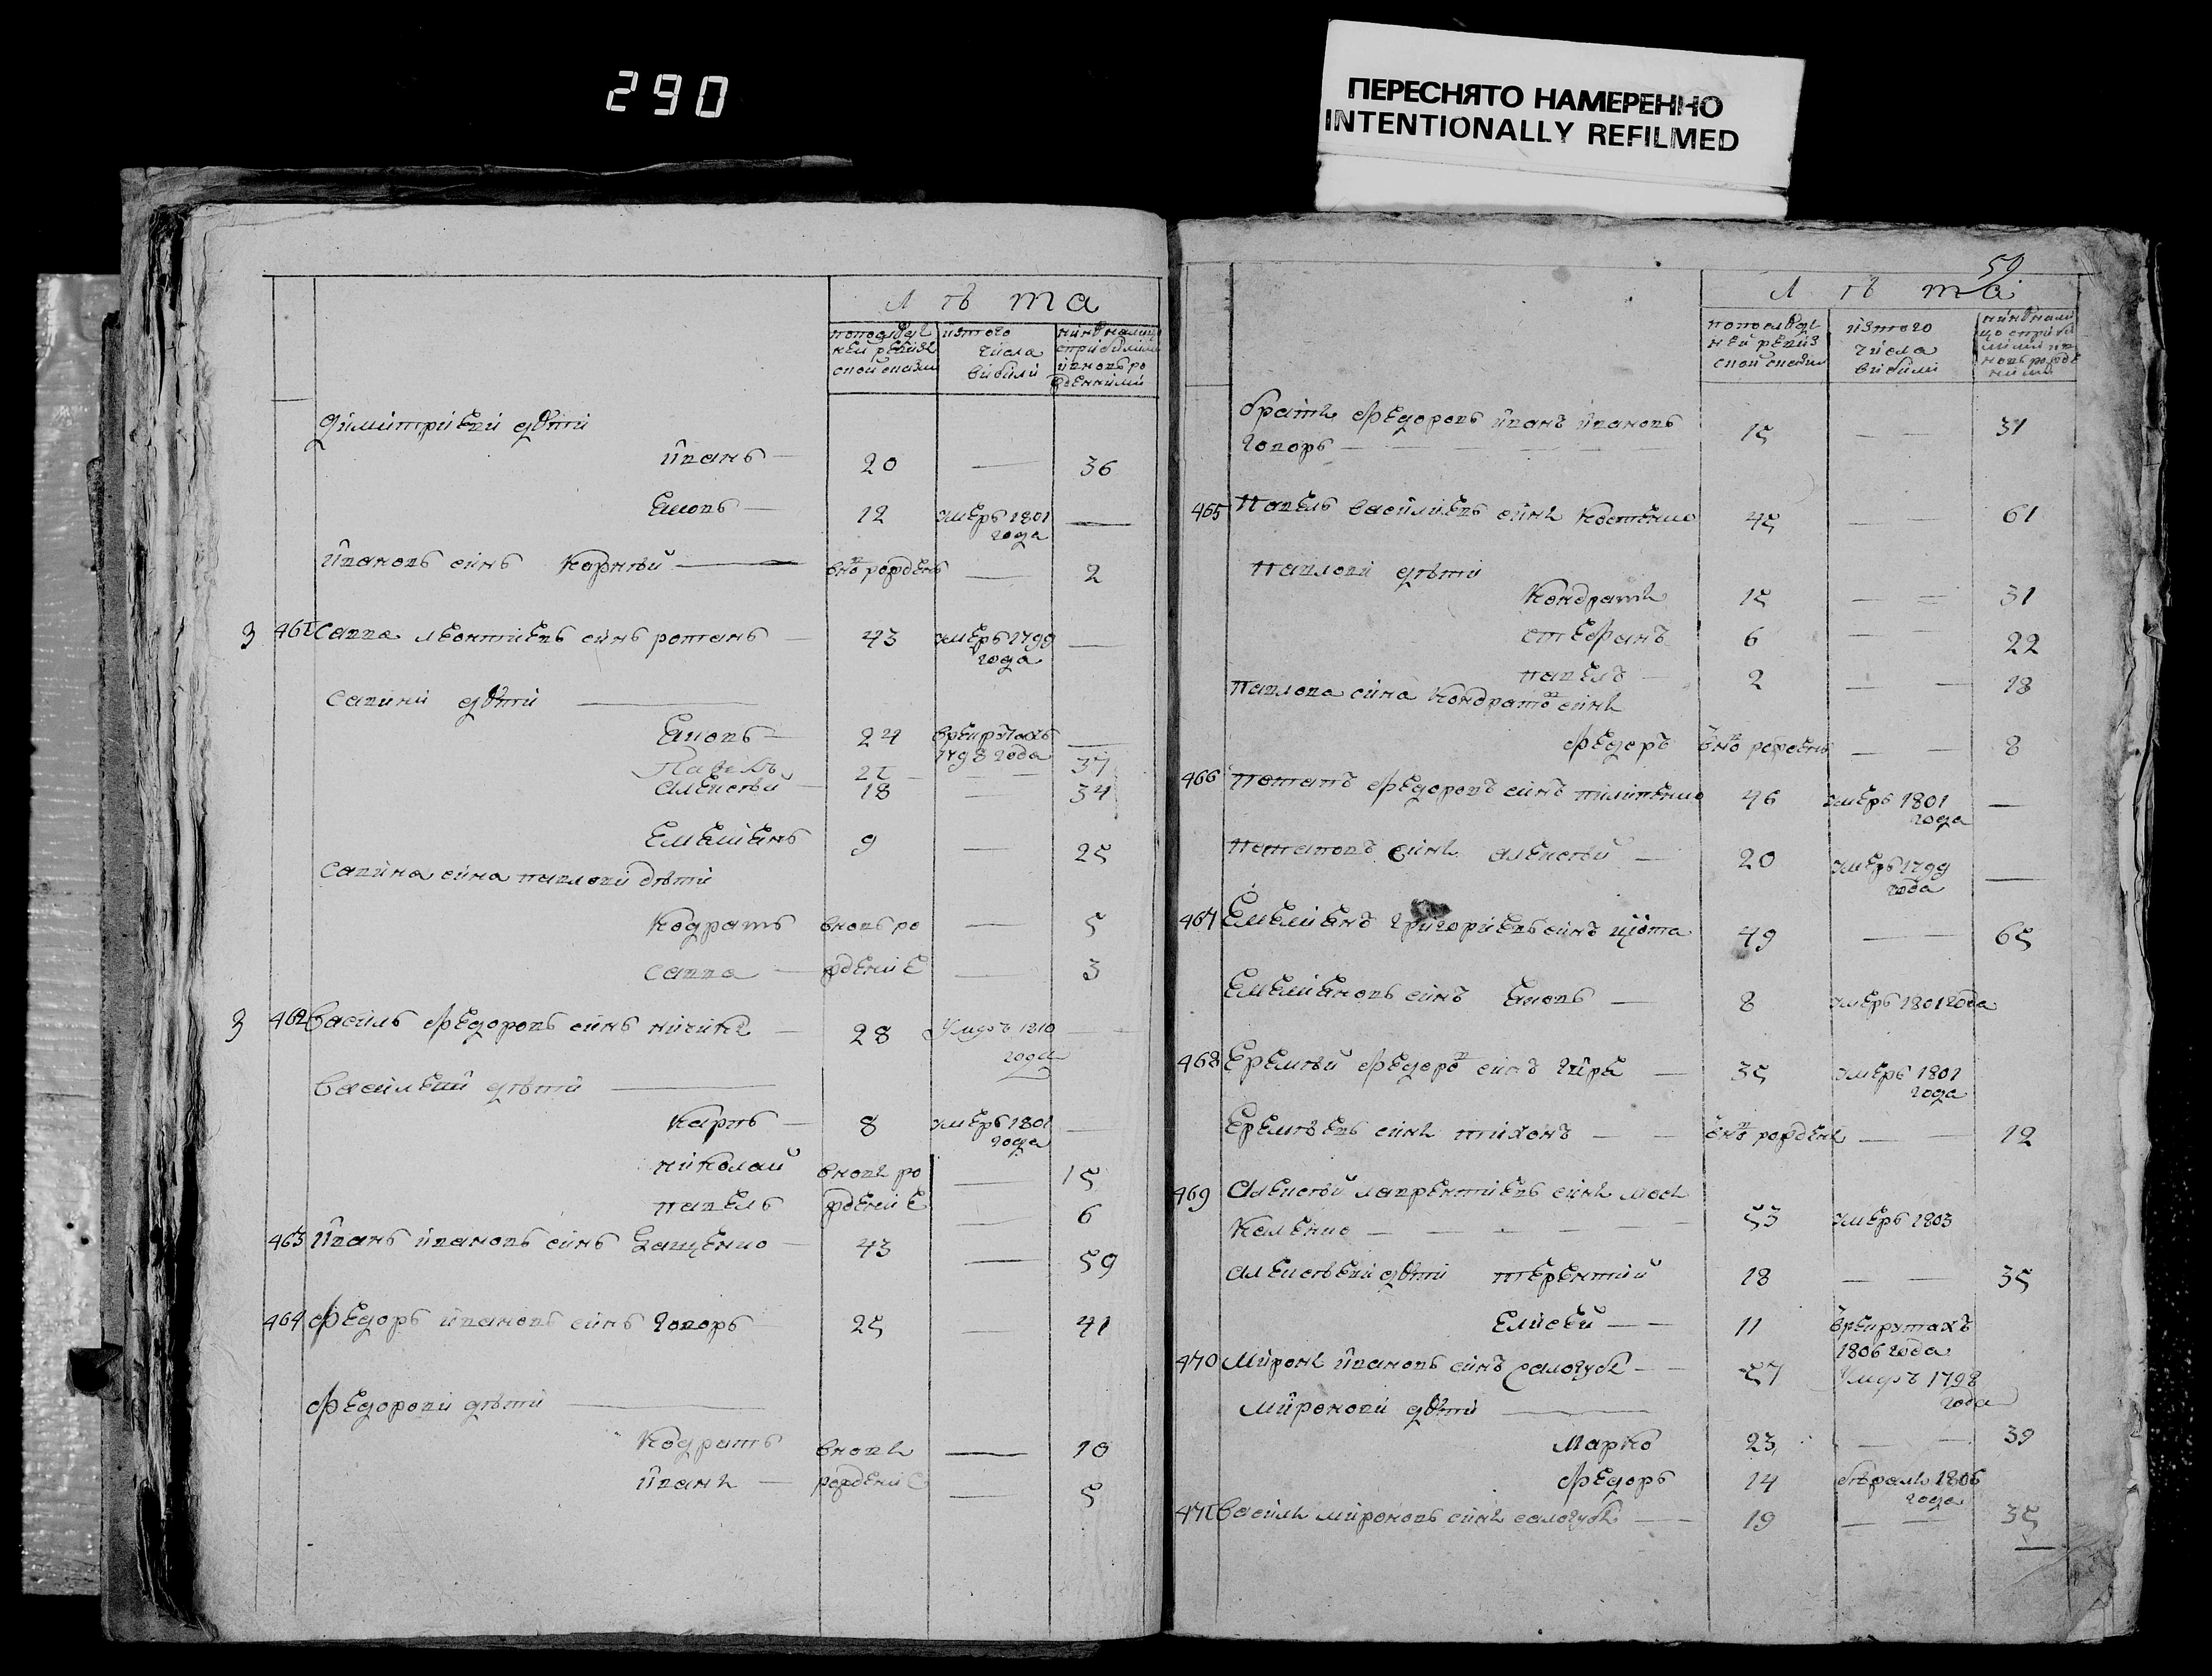 290
ПЕРЕСНЯТО НАМЕРЕННО
INTENTIONALLY REFILMED
Лѣта
попослѣд
ней ревиз
ской сказки
изтого
числа
выбыли
Димитриеви дѣти
Иванъ — 20 — 36
Яковъ — 12 умеръ 1801 —
года
Ивановъ синъ Корнѣй — вновъ рожденъ — 2
3 461 Савва Леонтиевъ синъ ротань — 43 умеръ 1799 —
года
Савини дѣти —
Яковъ — 24 врекрутахъ —
1798 года
Павелъ 21 — 37
Алексѣй — 18 — 34
Емелиянъ 9 — 25
Савина сина павлови дѣти
Кодратъ вновъ ро — 5
Савва — ждение — 3
3 462 Василь Федоровъ синъ — 28 умръ 1810 —
года
Василеви дѣти —
Карпъ — 8 умеръ 1801 —
года
николай вновь ро — 15
павелъ ждение — 6
463 Иванъ ивановъ синъ Ващенко — 43 — 59
464 Федоръ ивановъ синъ Говоръ 25 — 41
Федорови дѣти —
Кодратъ вновь — 10
Иванъ — рождение — 5
59
Лѣта
попослѣд
ней ревиз
ской сказки
изтого
числа
выбыли
братъ Федоровъ иванъ ивановъ
Говоръ — 15 — — 31
465 Павелъ василиевъ синъ Костенко 45 — — 61
Павлови дѣти
Кондратъ 15 — — 31
стефанъ 6 — — 22
павелъ — 2 — — 18
Павлова сина Кондратовъ синъ
Федоръ вновъ рожденъ — — 8
466 Потапъ Федоровъ синъ пилипенко 46 умеръ 1801 —
года
Потаповъ синъ алексѣй — 20 умеръ 1799 —
года
467 Емелиянъ григориевъ синъ 49 — — 65
Емелияновъ синъ Яковъ — 8 умеръ 1801 года
468 Еремѣй Федоровъ синъ — 35 умеръ 1801
года
Еремѣевъ синъ тихонъ — — вновъ рожденъ — — 12
469 Алексѣй лаврентиевъ синъ мос
каленко — — — — — 53 умеръ 1803
Алексѣеви дѣти терентий 18 — — 35
Елисей — — 11 врекрутахъ
1806 года
470 Миронъ ивановъ синъ салогубъ — — 57 умръ 1798
года
Миронови дѣти —
Марко 23 — — 39
Федоръ 14 1806
года
471 Василь мироновъ синъ салогубъ — — 19 — — 35